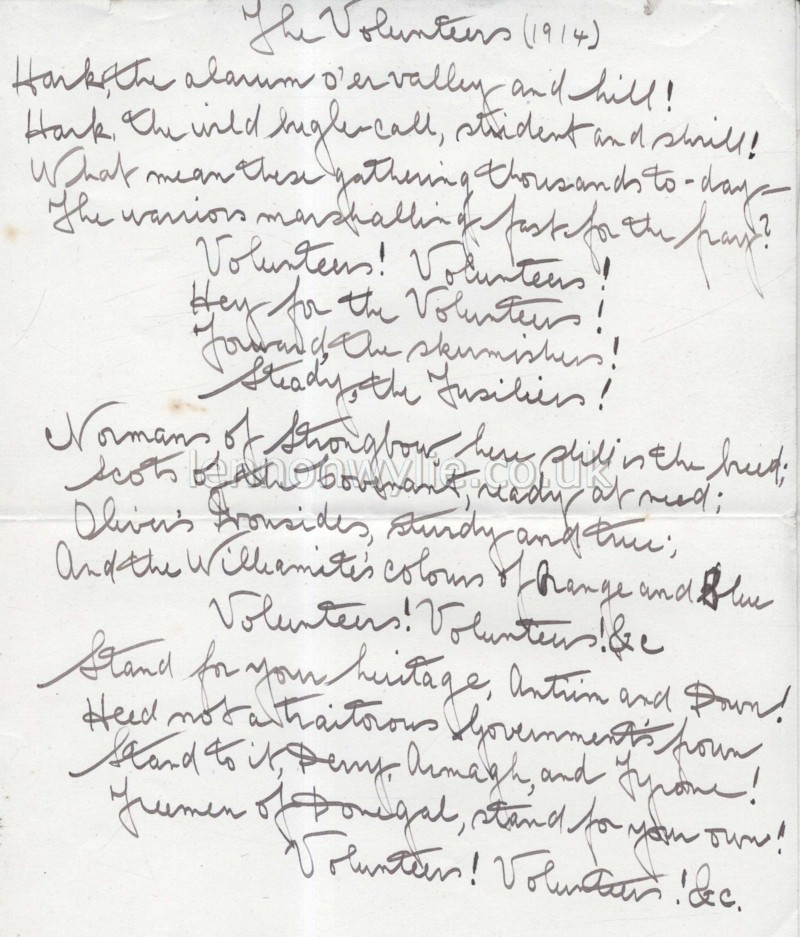 The Volunteers (1914)
Hark, the alarum o'er valley and hill!
Hark, the wild bugle-call, strident and shrill!
What mean these gathering thousands to-day—
The warriors marshalling fast for the fray?
Volunteers! Volunteers!
Hey for the Volunteers!
Forward, the skirmishers!
Steady, the Fusiliers!
Normans of Strongbow, here still is the breed;
Scots of the Covenant, ready at need;
lennonwylie.co.uk
Oliver's Ironsides, sturdy and true;
And the Williamite's colours of Orange and Blue
Volunteers! Volunteers! &c
Stand for your heritage, Antrim and Down!
Heed not a traitorous Government's frown
Stand to it, Derry, Armagh, and Tyrone!
Freemen of Donegal, stand for your own!
Volunteers! Volunteers! &c.